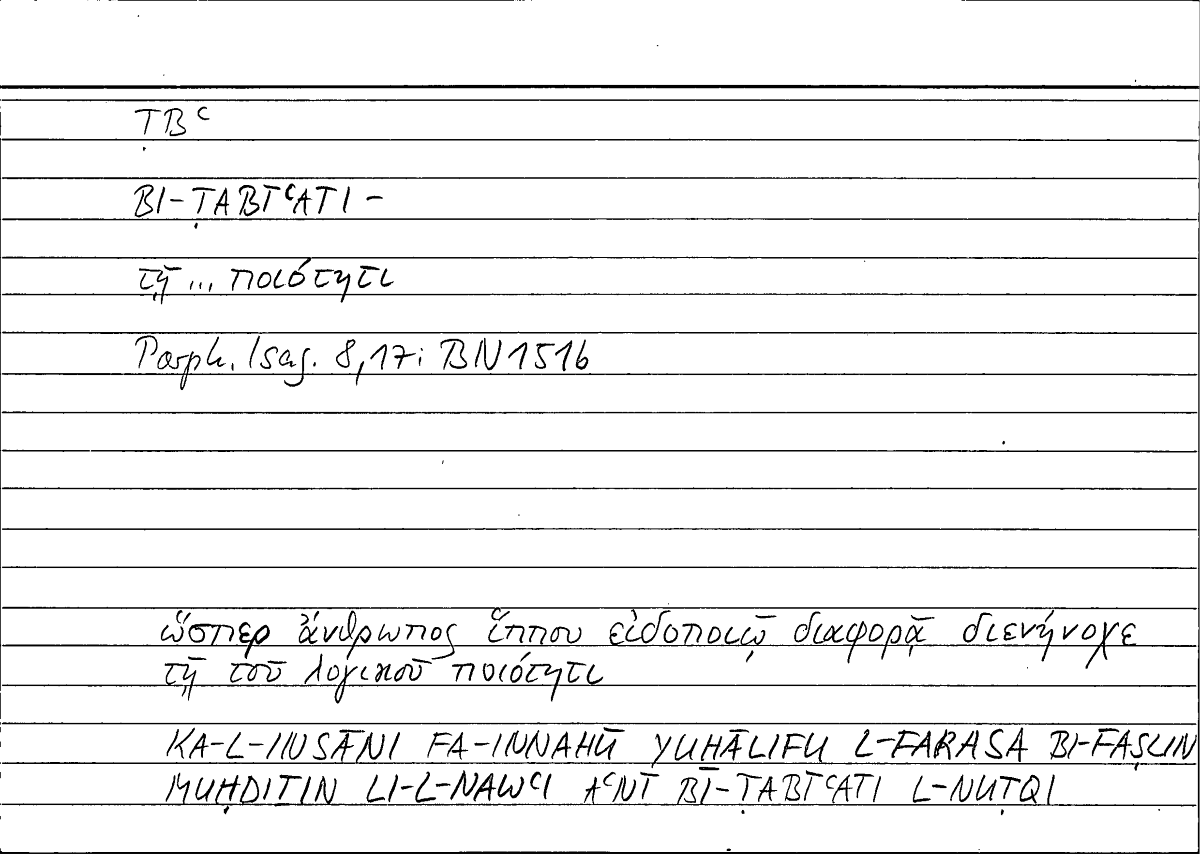 ṬBʿ
BI-ṬABĪʿATI-
τῇ ... ποιότητι
Porph. Isag. 8,17: BN 151b
ὥσπερ ἄνθρωπος ἵππου εἰδοποιῷ διαφορᾷ διενήνοχε
τῇ τοῦ λογικοῦ ποιότητι
KA-L-INSĀNI FA-INNAHŪ YUḪĀLIFU L-FARASA BI-FAṢLIN
MUḤDIṮIN LI-L-NAWʿI AʿNĪ BI-ṬABĪʿATI L-NUṬQI